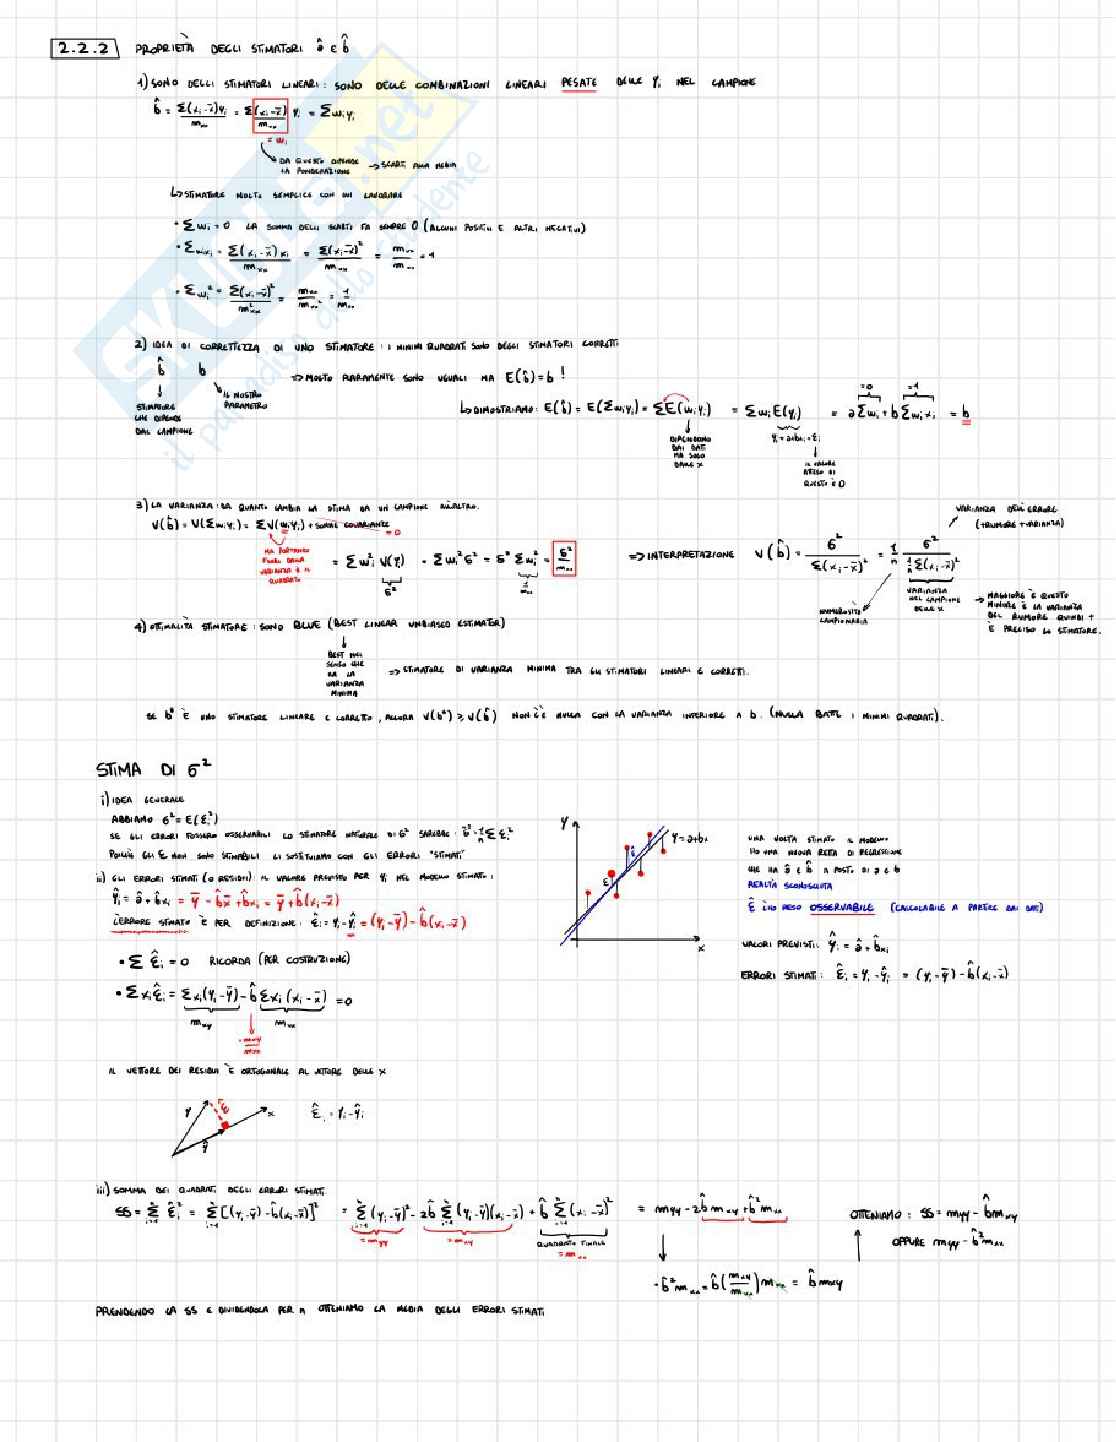 2.2.2 PROPRIETÀ DEGLI STIMATORI â E b̂
1) SONO DEGLI STIMATORI LINEARI: SONO DELLE COMBINAZIONI LINEARI PESATE DELLE yᵢ NEL CAMPIONE
b̂ = Σ(xᵢ-x̄)yᵢ / mₓₓ = Σ (xᵢ-x̄)/mₓₓ yᵢ = Σwᵢyᵢ
= wᵢ
DA QUESTO DIPENDE LA PONDERAZIONE → SCARTI DALLA MEDIA
↳ STIMATORE MOLTO SEMPLICE CON CUI LAVORARE
• Σwᵢ = 0 LA SOMMA DEGLI SCARTI FA SEMPRE 0 (ALCUNI POSITIVI E ALTRI NEGATIVI)
• Σwᵢxᵢ = Σ(xᵢ-x̄)xᵢ / mₓₓ = Σ(xᵢ-x̄)² / mₓₓ = mₓₓ/mₓₓ = 1
• Σwᵢ² = Σ(xᵢ-x̄)² / m²ₓₓ = mₓₓ/mₓₓ² = 1/mₓₓ
2) IDEA DI CORRETTEZZA DI UNO STIMATORE: I MINIMI QUADRATI SONO DEGLI STIMATORI CORRETTI
b̂ b ⇒ MOLTO RARAMENTE SONO UGUALI MA E(b̂) = b !
STIMATORE CHE DIPENDE DAL CAMPIONE
IL NOSTRO PARAMETRO
↳ DIMOSTRIAMO: E(b̂) = E(Σwᵢyᵢ) = ΣE(wᵢyᵢ) = ΣwᵢE(yᵢ) = aΣwᵢ + bΣwᵢxᵢ = b
=0 =1
DIPENDONO DAI DATI MA SOLO DALLE X
yᵢ = a+bxᵢ+εᵢ
IL VALORE ATTESO DI QUESTO È 0
3) LA VARIANZA: DA QUANTO CAMBIA LA STIMA DA UN CAMPIONE ALL'ALTRO.
V(b̂) = V(Σwᵢyᵢ) = ΣV(wᵢyᵢ) + SOMME COVARIANZE = 0
MA PORTANDO FUORI DALLA VARIANZA È AL QUADRATO
= Σwᵢ² V(yᵢ) = Σwᵢ²σ² = σ² Σwᵢ² = σ²/mₓₓ
σ² 1/mₓₓ
⇒ INTERPRETAZIONE V(b̂) = σ² / Σ(xᵢ-x̄)² = 1/n σ² / (1/n Σ(xᵢ-x̄)²)
VARIANZA DELL'ERRORE (+RUMORE +VARIANZA)
NUMEROSITÀ CAMPIONARIA
VARIANZA NEL CAMPIONE DELLE X. → MAGGIORE È QUESTO MINORE È LA VARIANZA DEL RUMORE QUINDI + È PRECISO LO STIMATORE.
4) OTTIMALITÀ STIMATORE: SONO BLUE (BEST LINEAR UNBIASED ESTIMATOR)
BEST NEL SENSO CHE HA LA VARIANZA MINIMA
⇒ STIMATORE DI VARIANZA MINIMA TRA GLI STIMATORI LINEARI E CORRETTI.
SE b° È UNO STIMATORE LINEARE E CORRETTO, ALLORA V(b°) ≥ V(b̂) NON C'È NULLA CON LA VARIANZA INFERIORE A b. (NULLA BATTE I MINIMI QUADRATI).
STIMA DI σ²
i) IDEA GENERALE
ABBIAMO σ² = E(εᵢ²)
SE GLI ERRORI FOSSERO OSSERVABILI LO STIMATORE NATURALE DI σ² SAREBBE: σ̃² = 1/n Σεᵢ²
POICHÈ GLI ε NON SONO STIMABILI LI SOSTITUIAMO CON GLI ERRORI "STIMATI"
ii) GLI ERRORI STIMATI (O RESIDUI): IL VALORE PREVISTO PER yᵢ NEL MODELLO STIMATO:
ŷᵢ = â + b̂xᵢ = ȳ - b̂x̄ + b̂xᵢ = ȳ + b̂(xᵢ-x̄)
L'ERRORE STIMATO È PER DEFINIZIONE: ε̂ᵢ = yᵢ-ŷᵢ = (yᵢ-ȳ) - b̂(xᵢ-x̄)
• Σ ε̂ᵢ = 0 RICORDA (PER COSTRUZIONE)
• Σxᵢε̂ᵢ = Σxᵢ(yᵢ-ȳ) - b̂Σxᵢ(xᵢ-x̄) = 0
mₓᵧ mₓₓ
mₓᵧ/mₓₓ
Y
Y=a+bx
ε̂
ε
X
UNA VOLTA STIMATO IL MODELLO
HO UNA NUOVA RETTA DI REGRESSIONE
CHE HA â E b̂ A POSTO DI a E b
REALTÀ SCONOSCIUTA
ε̂ L'HO RESO OSSERVABILE (CALCOLABILE A PARTIRE DAI DATI)
VALORI PREVISTI: ŷᵢ = â + b̂xᵢ
ERRORI STIMATI: ε̂ᵢ = yᵢ-ŷᵢ = (yᵢ-ȳ) - b̂(xᵢ-x̄)
IL VETTORE DEI RESIDUI È ORTOGONALE AL VETTORE DELLE X
y ε̂ x ŷ ε̂ᵢ = yᵢ-ŷᵢ
iii) SOMMA DEI QUADRATI DEGLI ERRORI STIMATI
SS = Σ ε̂ᵢ² = Σ[(yᵢ-ȳ)-b̂(xᵢ-x̄)]² = Σ(yᵢ-ȳ)² - 2b̂ Σ(yᵢ-ȳ)(xᵢ-x̄) + b̂ Σ(xᵢ-x̄)² = mᵧᵧ - 2b̂mₓᵧ + b̂²mₓₓ
= mᵧᵧ = mₓᵧ QUADRATO FINALE = mₓₓ
OTTENIAMO: SS = mᵧᵧ - b̂mₓᵧ
OPPURE mᵧᵧ - b̂²mₓₓ
- b̂²mₓₓ = b̂(mₓᵧ/mₓₓ)mₓₓ = b̂mₓᵧ
PRENDENDO LA SS E DIVIDENDOLA PER n OTTENIAMO LA MEDIA DEGLI ERRORI STIMATI
SKUOLA.net
il paradiso dello studente